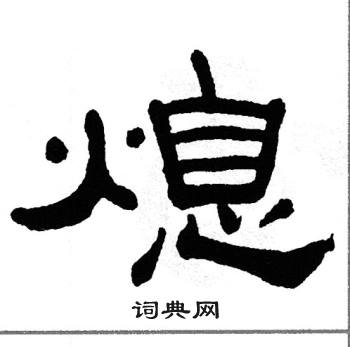 熄
词典网